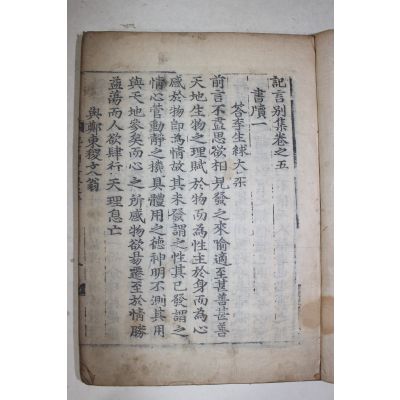 記言別集卷之五
書牘一
答李生綠大來
前言不盡思欲相見發之來喻適至甚善甚善
天地生物之理賦於物而為性主於身而為心
感於物即為情故其未發謂之性其已發謂之
情心管動靜之機具體用之德神明不測其用
與天地參矣而心之所感物欲易遷至於情勝
益蕩而人欲肆行天理息亡
與鄭東稷文翁